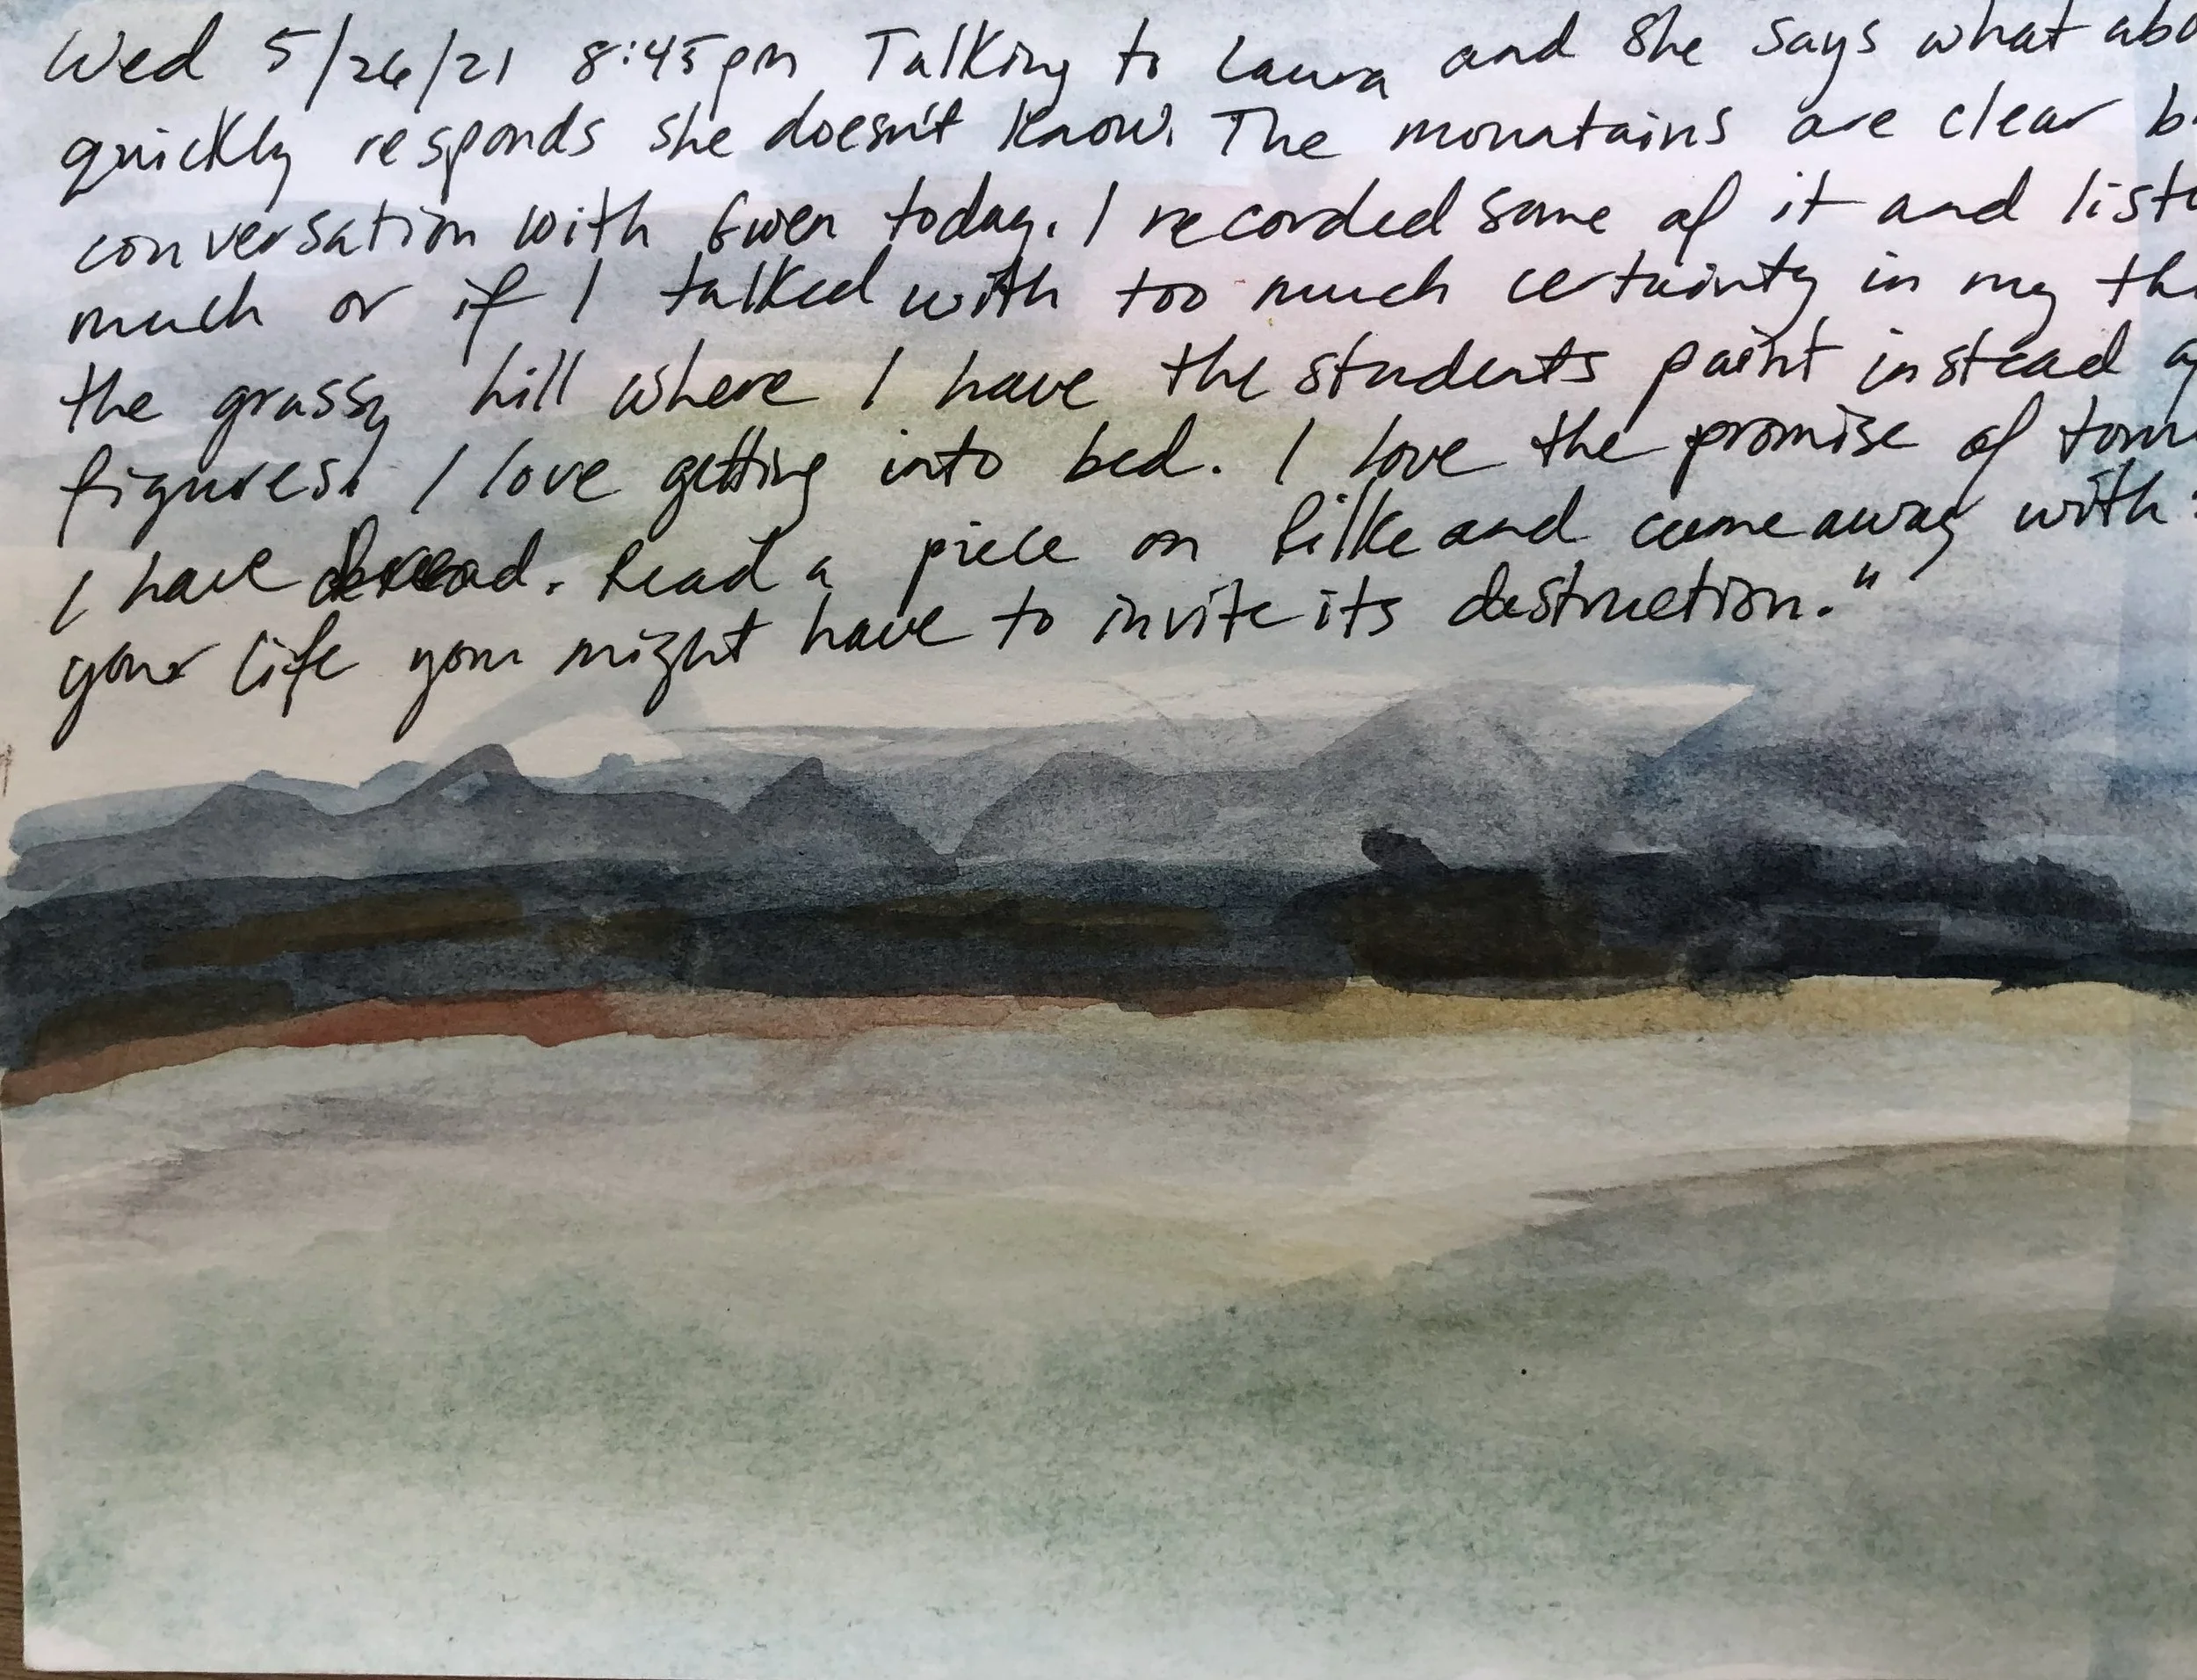 Wed 5/26/21 8:45pm Talking to Laura and she says what abo
quickly responds she doesn't know. The mountains are clear b
conversation with Gwen today. I recorded some of it and liste
much or if I talked with too much certainty in my th
the grassy hill where I have the students paint instead of
figures. I love getting into bed. I love the promise of tomo
I have dread. Read a piece on Rilke and came away with:
your life you might have to invite its destruction."